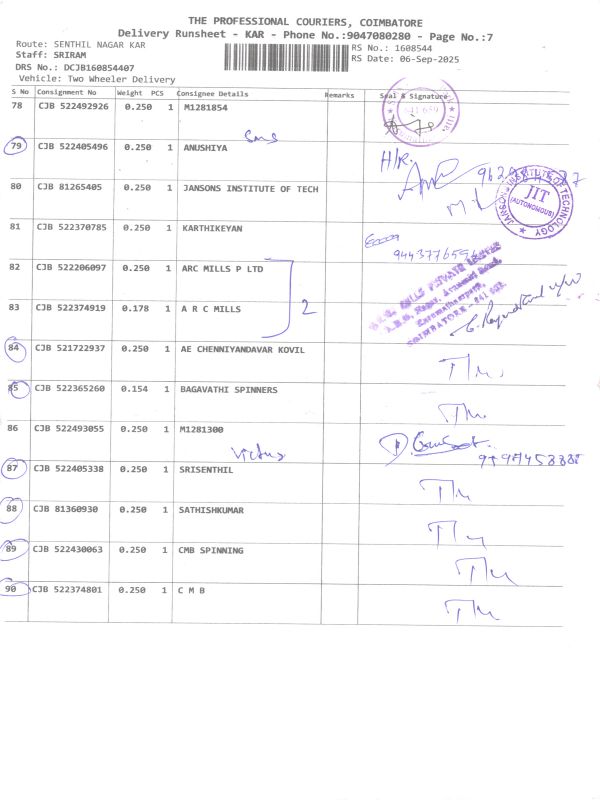 THE PROFESSIONAL COURIERS, COIMBATORE
Delivery Runsheet - KAR - Phone No.:9047080280 - Page No.:7
Route: SENTHIL NAGAR KAR
RS No.: 1608544
Staff: SRIRAM
RS Date: 06-Sep-2025
DRS No.: DCJB160854407
Vehicle: Two Wheeler Delivery
S No Consignment No Weight PCS Consignee Details Remarks Seal & Signature
78 CJB 522492926 0.250 1 M1281854
79 CJB 522405496 0.250 1 ANUSHIYA
H/R.
80 CJB 81265405 0.250 1 JANSONS INSTITUTE OF TECH
JANSONS INSTITUTE OF TECHNOLOGY
JIT
(AUTONOMOUS)
81 CJB 522370785 0.250 1 KARTHIKEYAN
82 CJB 522206097 0.250 1 ARC MILLS P LTD
83 CJB 522374919 0.178 1 A R C MILLS
2
MILLS PRIVATE LIMITED
COIMBATORE
84 CJB 521722937 0.250 1 AE CHENNIYANDAVAR KOVIL
85 CJB 522365260 0.154 1 BAGAVATHI SPINNERS
86 CJB 522493055 0.250 1 M1281300
Victus
87 CJB 522405338 0.250 1 SRISENTHIL
88 CJB 81360930 0.250 1 SATHISHKUMAR
89 CJB 522430063 0.250 1 CMB SPINNING
90 CJB 522374801 0.250 1 C M B